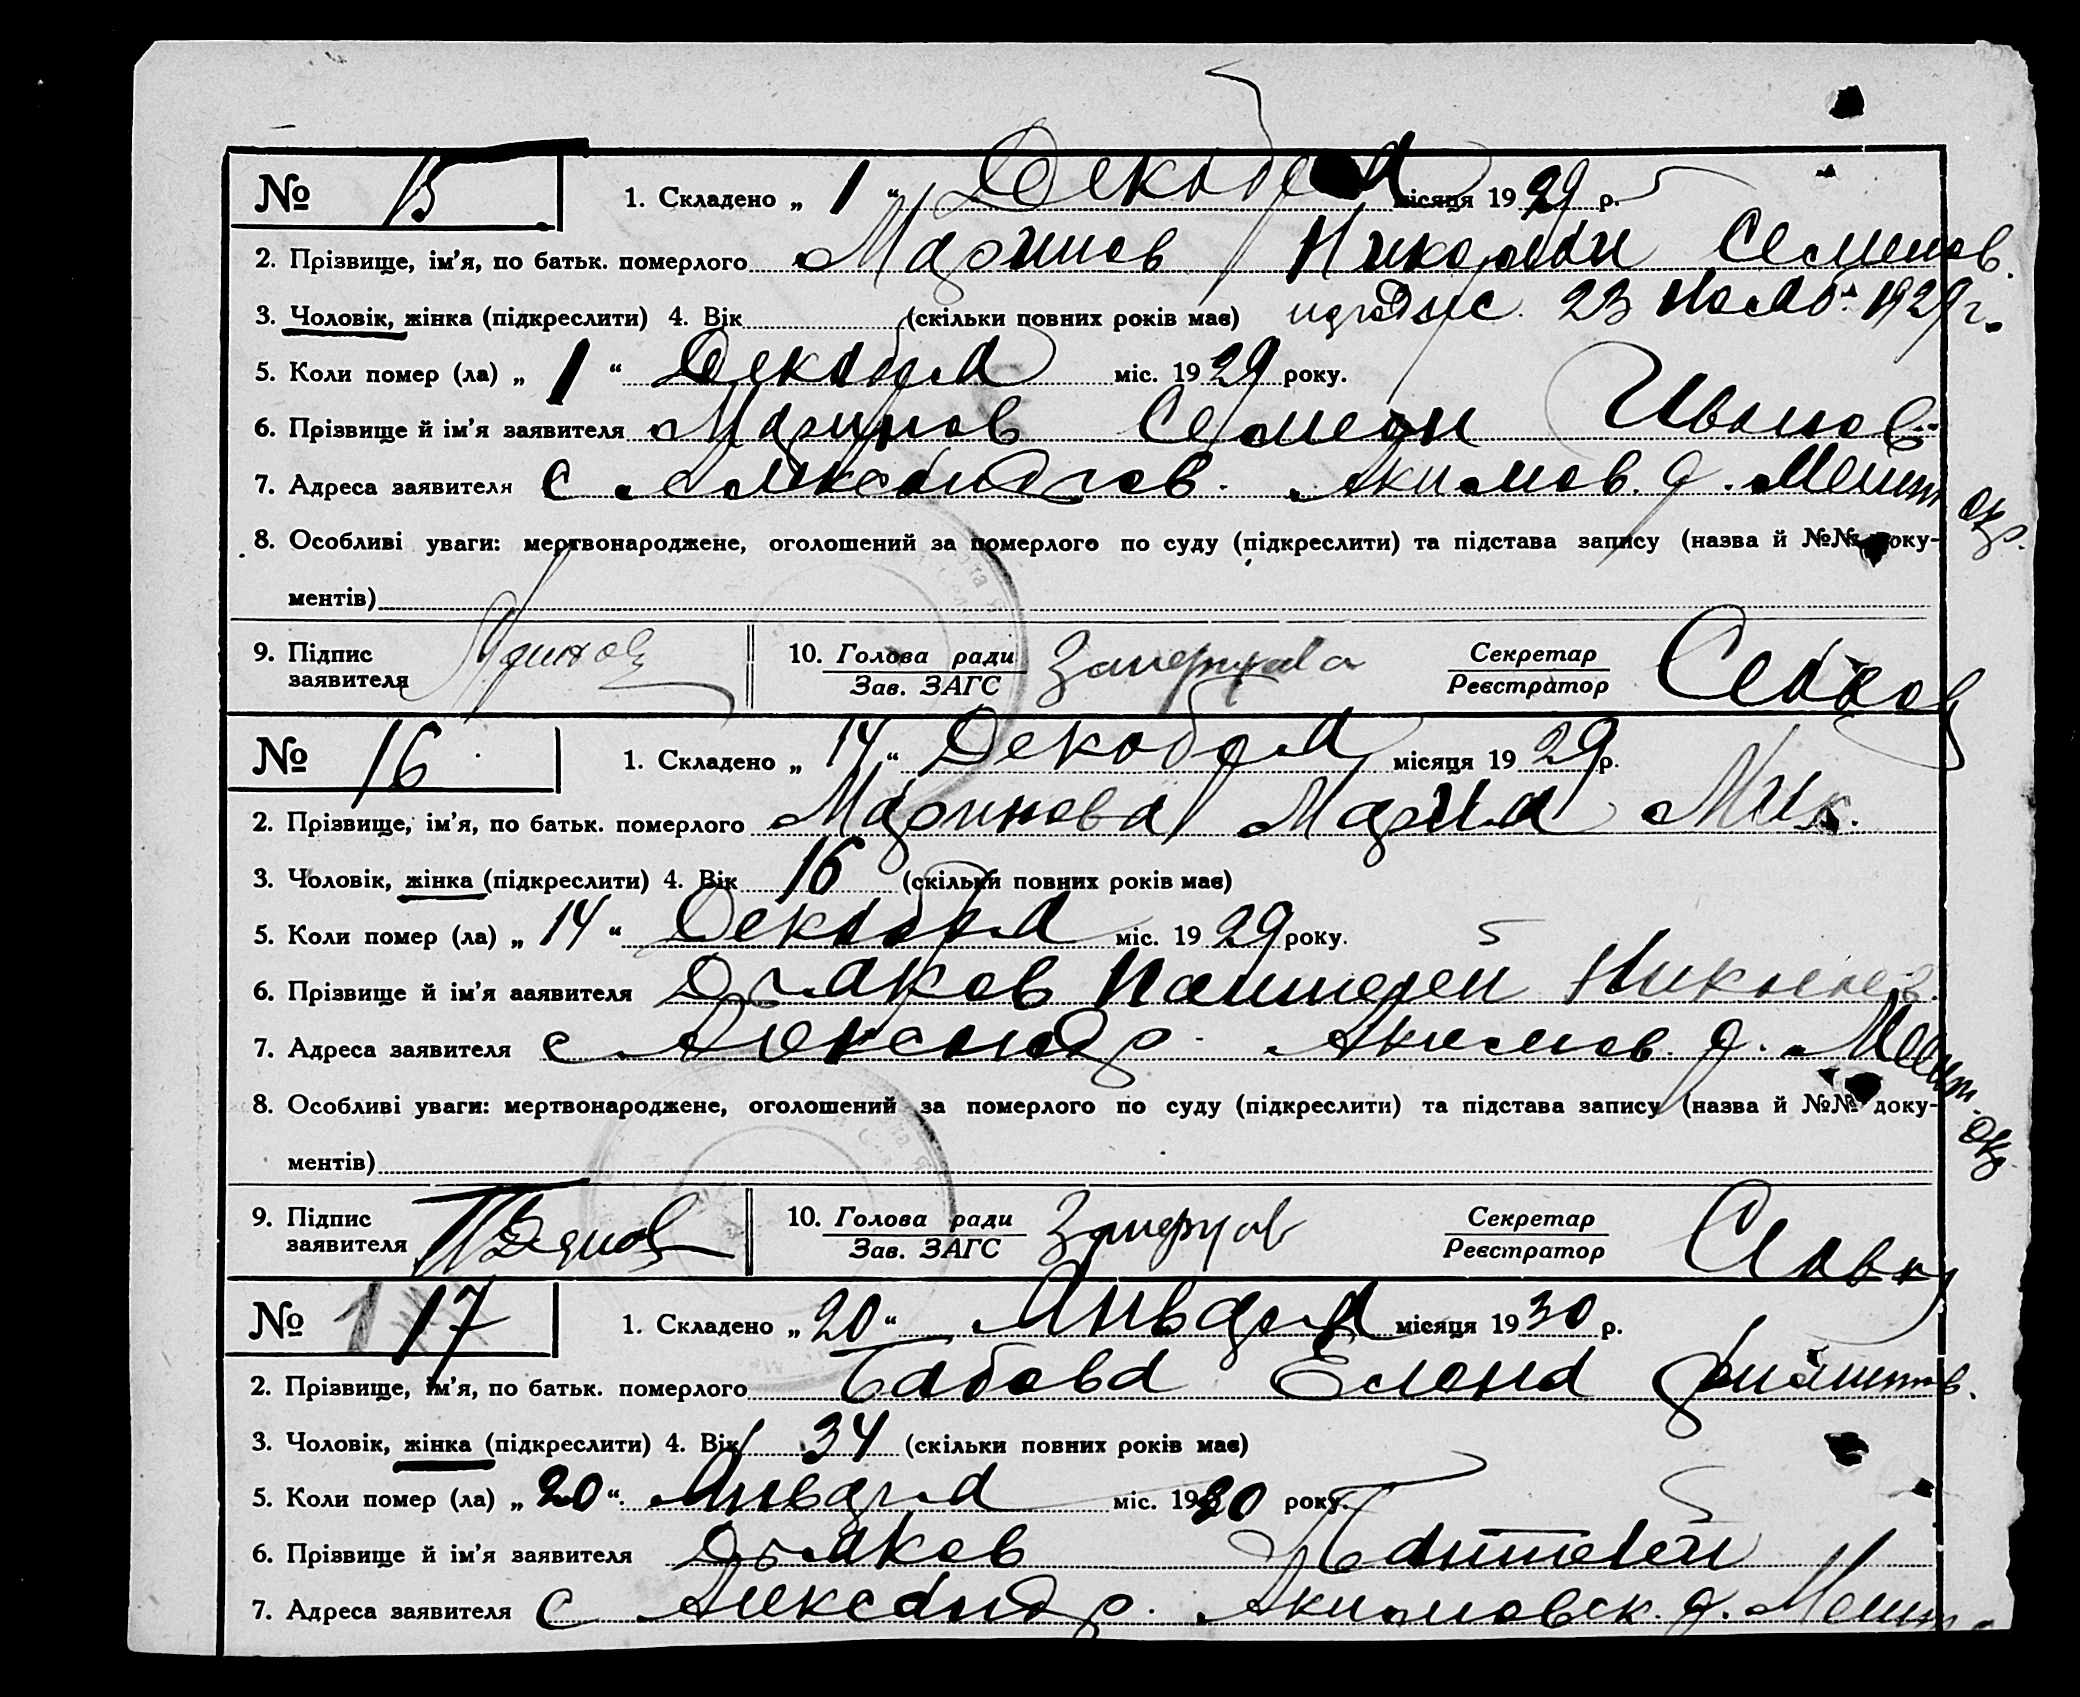 № 15 1. Складено „ 1 “ Декабря місяця 1929 р.
2. Прізвище, ім'я, по батьк. померлого Маринов Николай Семенов.
3. Чоловік, жінка (підкреслити) 4. Вік (скільки повних років має) 23 Нояб. 1929 г.
5. Коли помер (ла) „ 1 “ Декабря міс. 1929 року.
6. Прізвище й ім'я заявителя Маринов Семен Иванов
7. Адреса заявителя с Александров. Акимов. д. Мелит окр.
8. Особливі уваги: мертвонароджене, оголошений за померлого по суду (підкреслити) та підстава запису (назва й №№ доку-
ментів)
9. Підпис заявителя 10. Голова ради Секретар
Зав. ЗАГС Реєстратор
№ 16 1. Складено „ 14 “ Декабря місяця 1929 р.
2. Прізвище, ім'я, по батьк. померлого Маринова Мария Ник.
3. Чоловік, жінка (підкреслити) 4. Вік 16 (скільки повних років має)
5. Коли помер (ла) „ 14 “ Декабря міс. 1929 року.
6. Прізвище й ім'я заявителя Дьяков Пантелей Николаев.
7. Адреса заявителя с Александр. Акимов. д. Мелит. окр
8. Особливі уваги: мертвонароджене, оголошений за померлого по суду (підкреслити) та підстава запису (назва й №№ доку-
ментів)
9. Підпис заявителя 10. Голова ради Секретар
Зав. ЗАГС Реєстратор
№ 17 1. Складено „ 20 “ Января місяця 1930 р.
2. Прізвище, ім'я, по батьк. померлого Бабова Елена
3. Чоловік, жінка (підкреслити) 4. Вік 34 (скільки повних років має)
5. Коли помер (ла) „ 20 “ Января міс. 1930 року.
6. Прізвище й ім'я заявителя Дьяков Пантелей
7. Адреса заявителя с Александр. Акимовск. д. Мелит